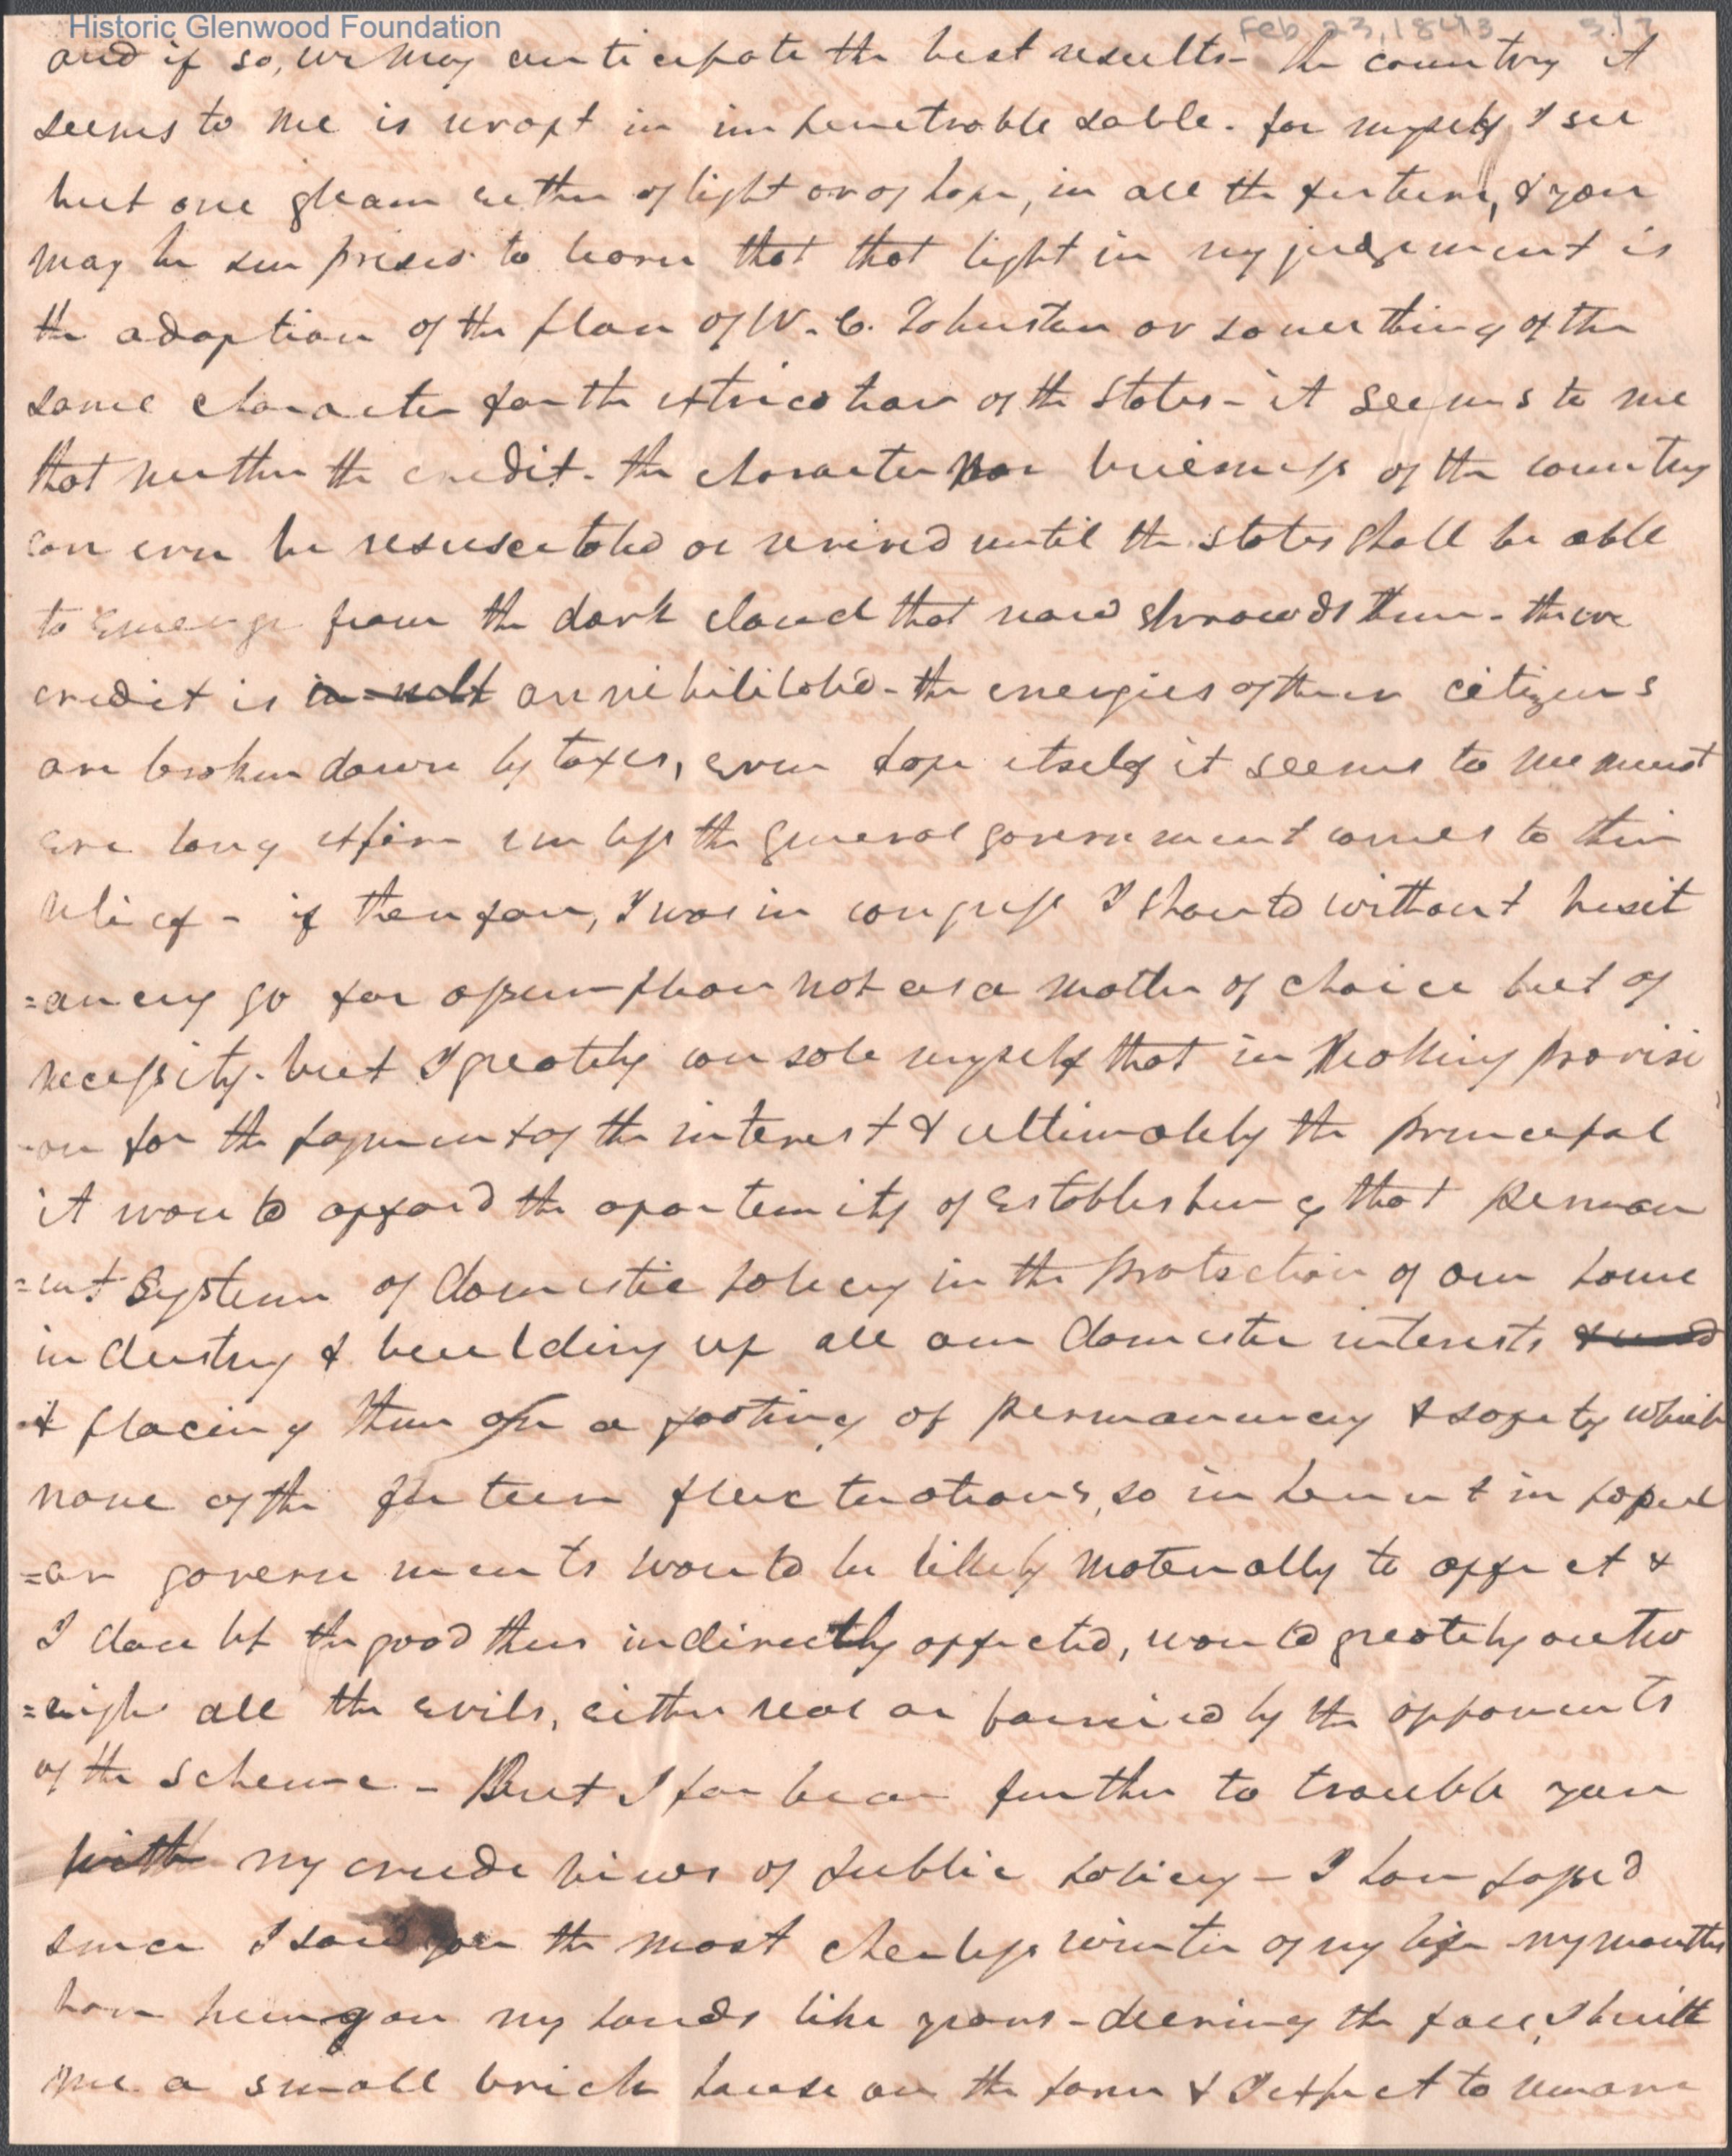 Historic Glenwood Foundation
Feb 23, 1843
and if so, we may anticipate the best results - the country it
seems to me is wrapt in impenetrable sable. for myself I see
but one gleam either of light or of hope, in all the future, & you
may be surprised to learn that that light in my judgement is
the adoption of the plan of W. C. Johnston or something of the
same character for the extrication of the States - it seems to me
that neither the credit - the character nor business of the country
can ever be resuscitated or revived until the states shall be able
to emerge from the dark cloud that now shrowds them - there
credit is annihilitated - the energies of their citizens
are broken down by taxes, even hope itself it seems to me must
ere long expire unless the general government comes to their
relief - if therefore, I was in congress I should without hesit
=ancy go for assumption not as a matter of choice but of
necessity. but I greately console myself that in making provisi
-on for the payment of the interest & ultimately the principal
it would afford the oportunity of establishing that perman
=ent System of domestic policy in the protection of our home
industry & building up all our domestic interests
& placing them on a footing of permanency & safety which
none of the future fluctuations, so inherent in popul
=ar governments would be likely materially to affect &
I doubt the good thus indirectly affected, would greately outw
=eigh all the evils, either real or fancied by the opponents
of the scheme. - But I forbear further to trouble you
with my crude views of public policy - I have passed
since I saw you the most cheerless winter of my life - my months
have hung on my hands like years - during the fall, I built
me a small brick house on the farm & I expect to remove